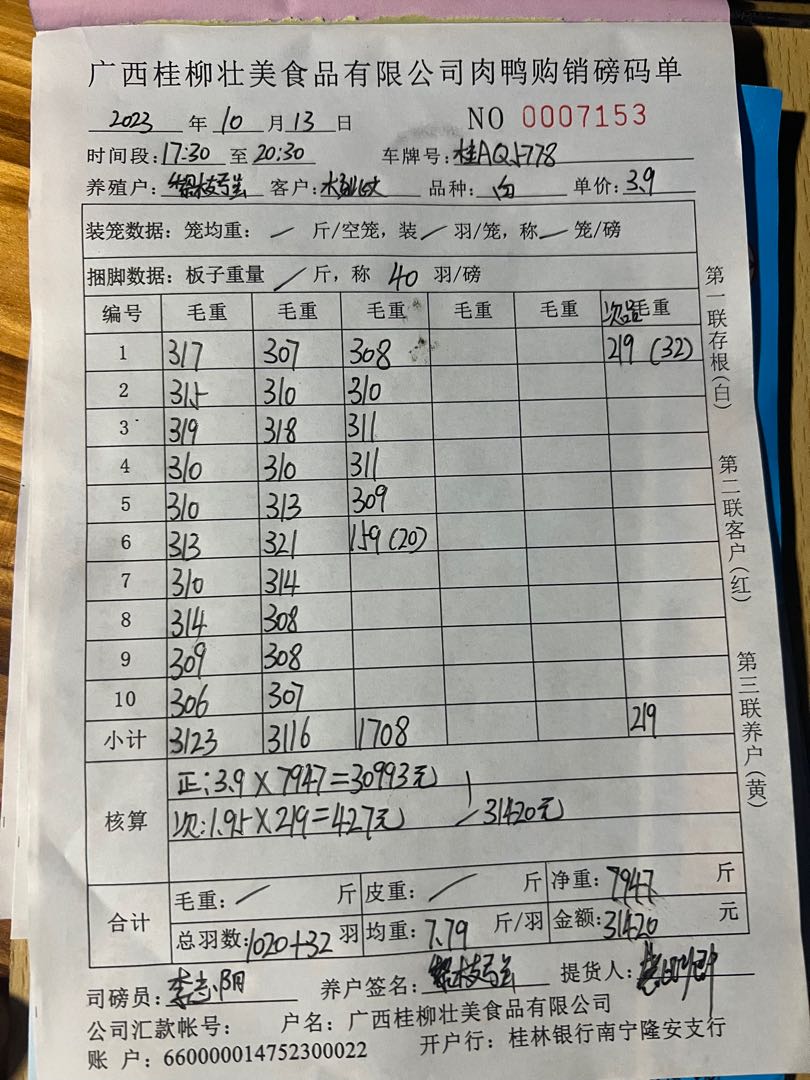 广西桂柳壮美食品有限公司肉鸭购销磅码单
2023 年 10 月 13 日 NO 0007153
时间段:17:30 至 20:30 车牌号:桂AQJ778
养殖户: 客户: 品种: 白 单价:3.9
装笼数据: 笼均重: / 斤/空笼, 装 / 羽/笼, 称 / 笼/磅
捆脚数据: 板子重量 / 斤, 称 40 羽/磅
编号 毛重 毛重 毛重 毛重 毛重 次品毛重
1 317 307 308 219 (32)
2 315 310 310
3 319 318 311
4 310 310 311
5 310 313 309
6 313 321 159 (20)
7 310 314
8 314 308
9 309 308
10 306 307
小计 3123 3116 1708 219
核算
正:3.9×7947=30993元
次:1.95×219=427元 31420元
合计
毛重: / 斤 皮重: / 斤 净重:7947 斤
总羽数:1020+32 羽 均重:7.79 斤/羽 金额:31420 元
司磅员:李志阳 养户签名: 提货人:
公司汇款帐号: 户名:广西桂柳壮美食品有限公司
账 户:660000014752300022 开户行:桂林银行南宁隆安支行
第一联存根(白)
第二联客户(红)
第三联养户(黄)